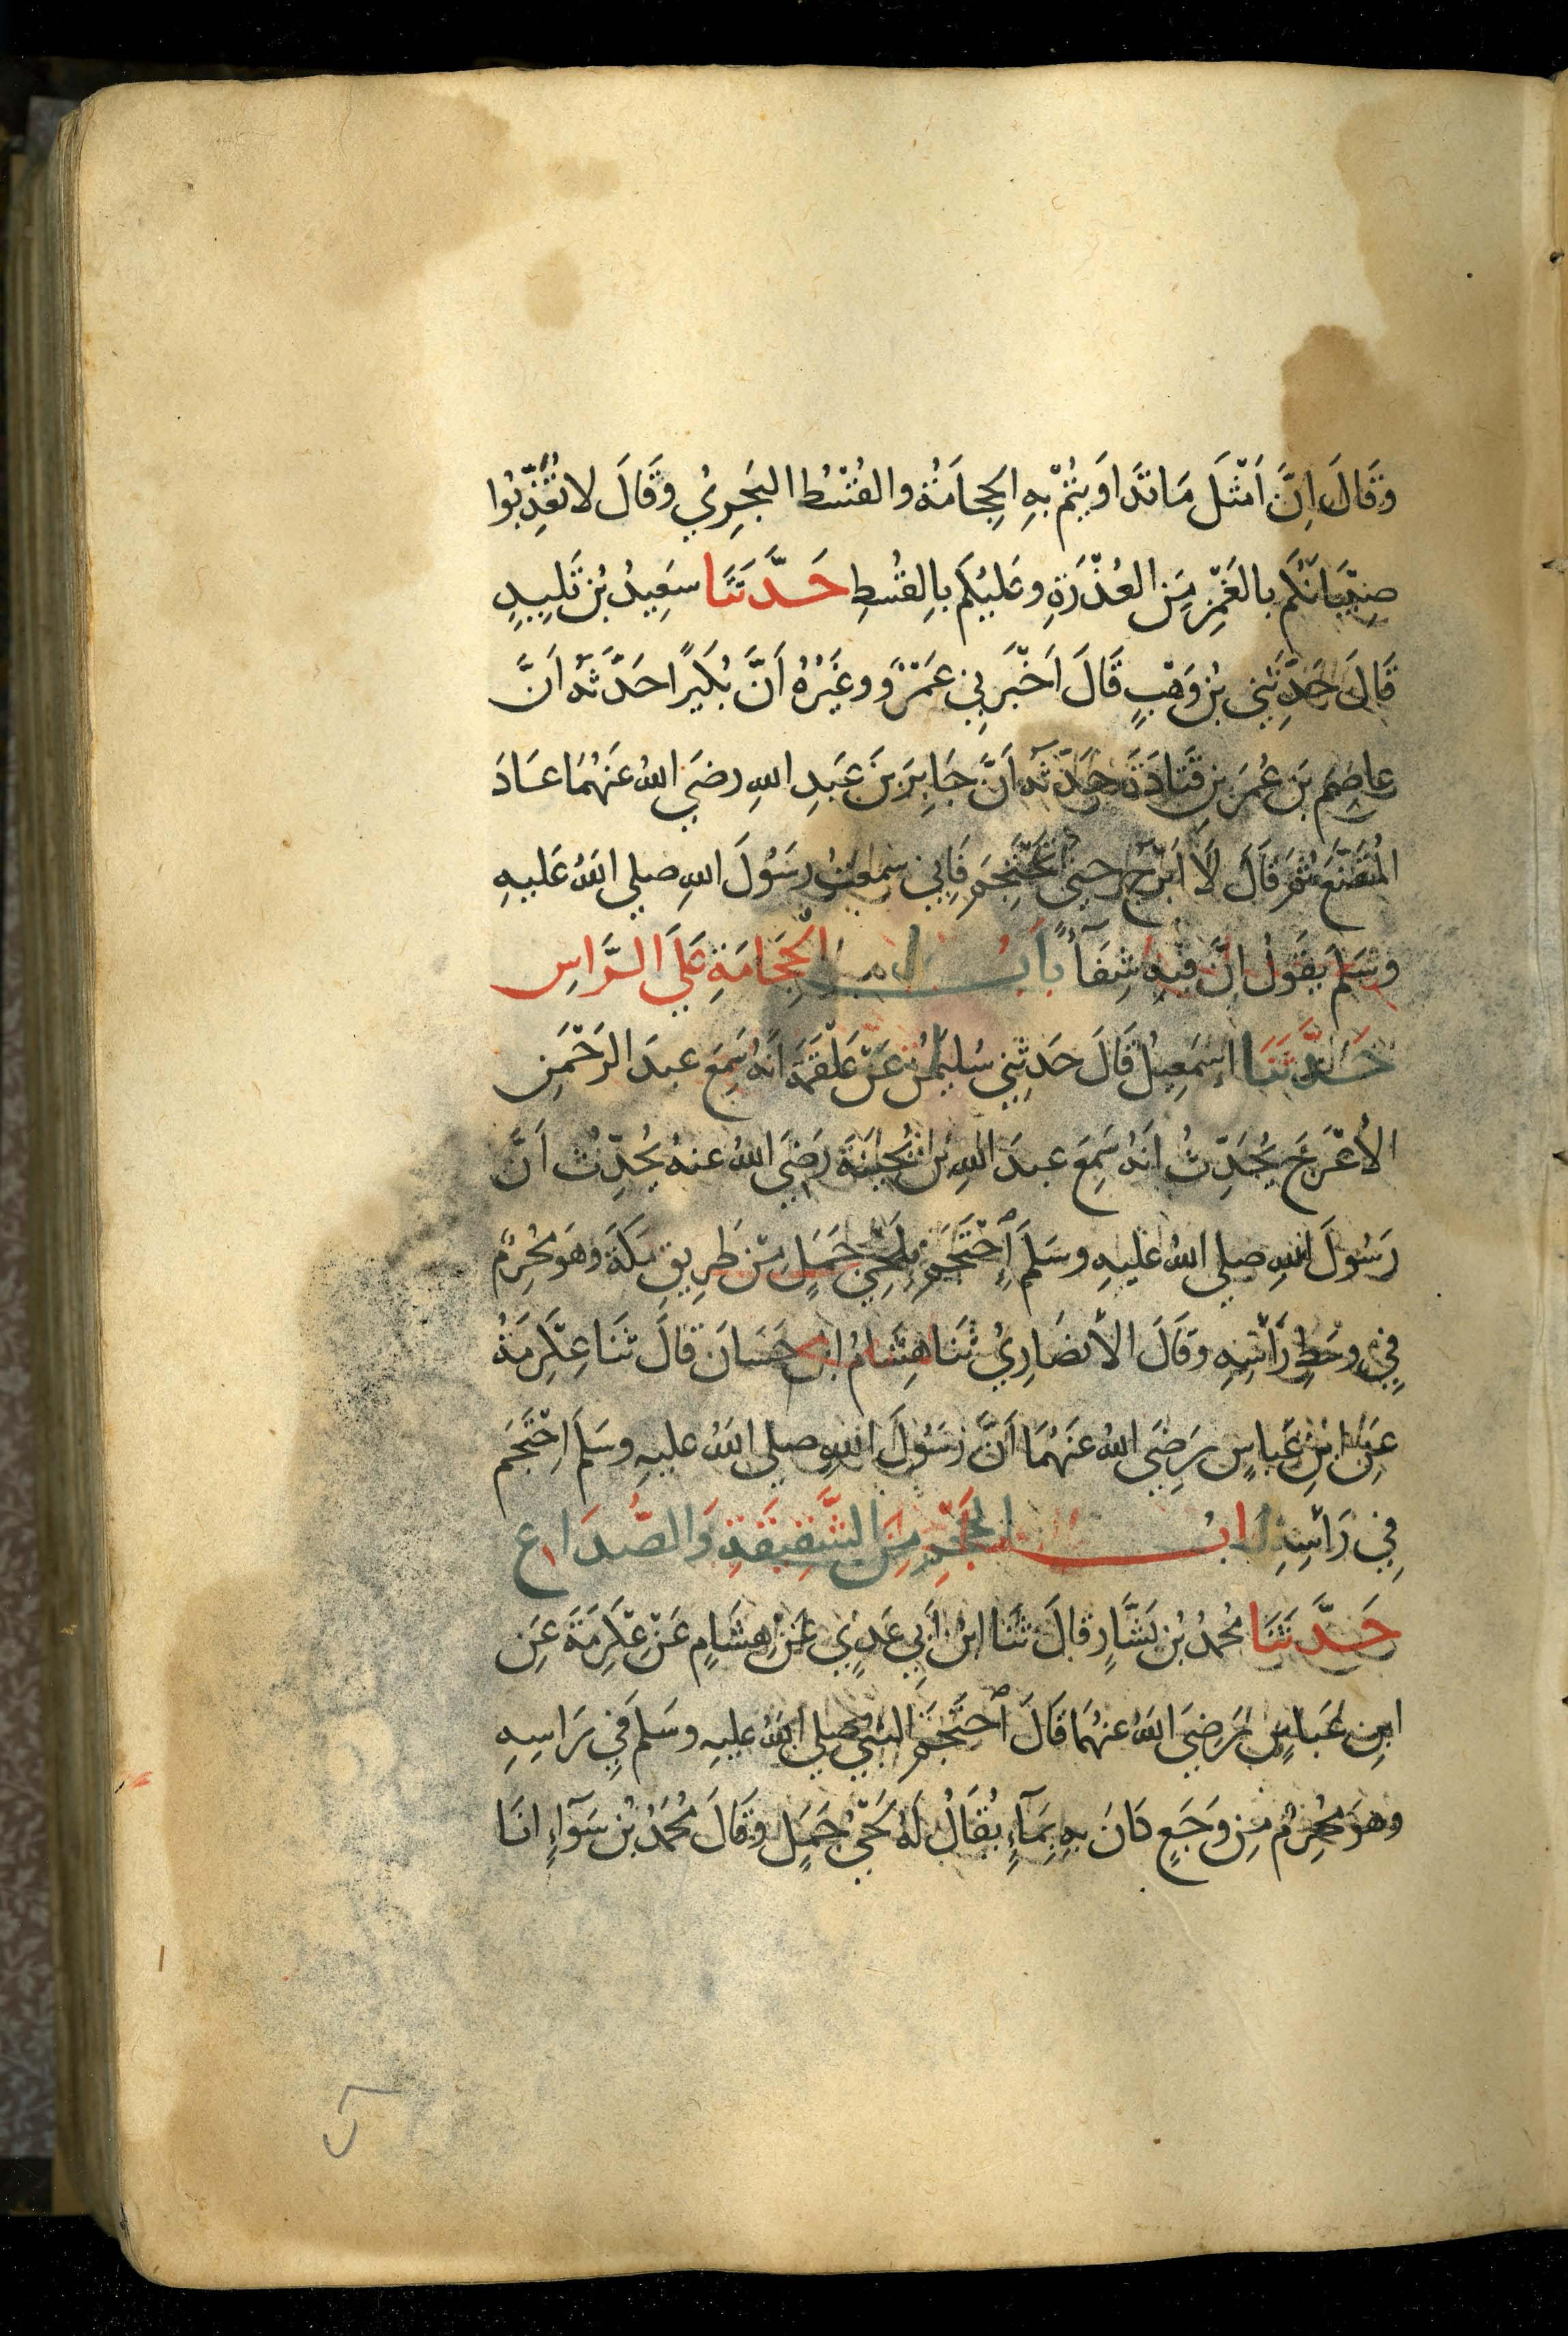 وَقَالَ اِنَّ اَمْثَلَ مَا تَدَاوَيْتُمْ بِهِ الحِجَامَةُ والقُسْطُ البَحرِيُ وَقَالَ لا تُعَذِّبُوا
صِبْيَانَكُم بالغَمْزِ مِنَ العُذْرَةِ وعَلَيْكُم بِالقُسْطِ حَدَّثَنَا سَعِيدُ بْنُ تَلِيدٍ
قَالَ حَدَّثَنِي بْنُ وَهْبٍ قَالَ اَخْبَرَنِي عَمْرٌو وغَيْرُهُ اَنَّ بُكَيرًا حَدَّثَهُ اَنَّ
عاصِمَ بنَ عُمَرَ بنِ قَتَادَةَ حَدَّثَهُ اَنَّ جَابِرَ بنَ عَبدِ اللهِ رضَيَ اللهُ عَنهُمَا عَادَ
المُقَنَّعَ ثُمَّ قَالَ لَا اَبْرَحُ حتى تَحْتَجِمَ فَاِنِي سمعتُ رسُولَ اللهِ صلي اللهُ عَليهِ
وسَلمَ يقَولُ اِنَّ فيهِ شِفَآءً بابُ الحِجَامَةِ عَلَى الرَّاسِ
حَدَّثَنَا اِسمَعِيلُ قَالَ حَدثَنِي سُليمٰنُ عَنْ عَلْقَمَةَ اَنهُ سَمِعَ عبدَ الرَحْمَنِ
الأعْرَجَ يُحَدِّثُ اَنهُ سَمِعَ عبدَ اللهِ بنَ بُحَينَةَ رَضِيَ اللهُ عنهُ يُحدِّثُ اَنَّ
رَسُولَ اللهِ صلي اللهُ عليهِ وسَلمَ اِحْتَجَمَ بِلَحْيِ جَمَلٍ مِنْ طَرِيقِ مَكةَ وَهوَ مُحْرِمٌ
فِي وسَطِ رَأسِهِ وقَالَ الأنصَارِيُ ثَنَا هِشَامُ ابن حَسَانَ قَالَ ثَنَا عِكْرِمَةُ
عَنِ ابنِ عَباسٍ رَضِيَ اللهُ عَنهُمَا اَنَّ رَسُولَ اللهِ صلي اللهُ عليهِ وسَلمَ اِحْتَجَمَ
فِي رَأسِهِ بابُ الحَجْمِ مِنَ الشَّقِيقَةِ وَالصُّدَاعِ
حَدَّثَنَا مُحمدُ بْنُ بَشَّارٍ قَالَ ثَنَا ابنُ اَبِي عَدِيٍ عَنْ هِشَامٍ عَنْ عِكْرِمَةَ عَنِ
ابنِ عَباسٍ رَضِيَ اللهُ عنهُمَا قَالَ اَحْتَجَمَ النبيُ صلي اللهُ عليهِ وسَلمَ فِي رَاسِهِ
وهوَ مُحْرِمٌ مِنْ وَجَعٍ كانَ بهِ بِمَآءٍ يُقَالُ لَهُ لَحْيُ جَمَلٍ وقَالَ مُحَمَّدُ بْنُ سَوَآءٍ انَا